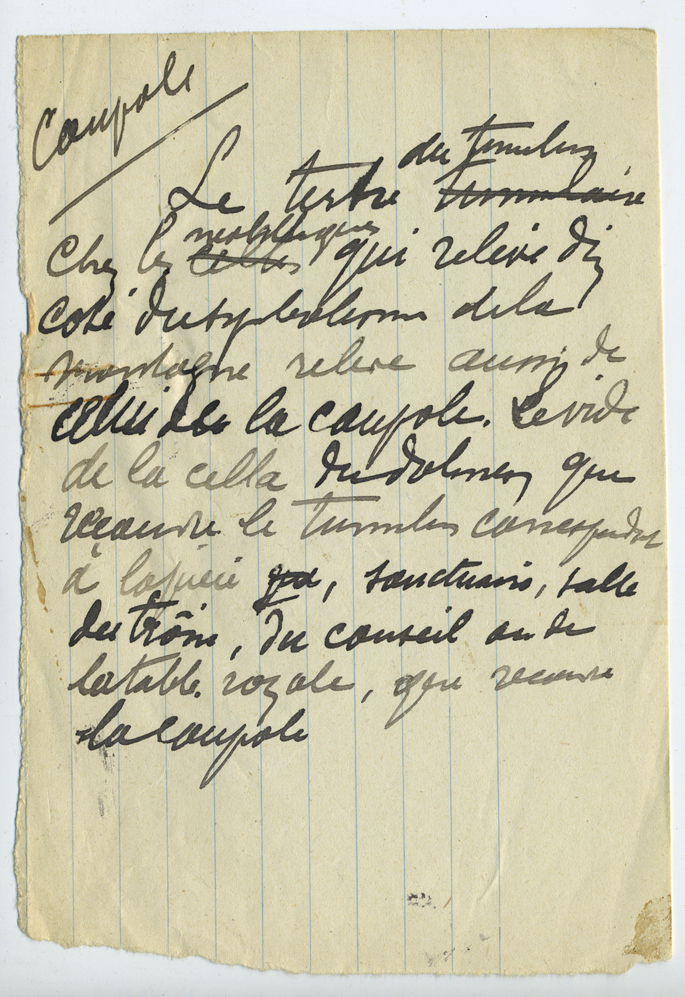 Coupole
du tumulus
Le tertre tumulaire
mégalithiques
Chez les celtes qui relève d'un
coté du symbolisme de la
montagne relève aussi de
celui de la coupole. Le vide
de la cella du dolmen que
recouvre le tumulus correspondrait
à la pièce que, sanctuaire, salle
du trône, du conseil ou de
la table royale, que recouvre
la coupole